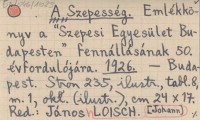 A Szepesség. Emlékkö-
nyv a "Szepesi Egyesület Bu-
dapesten" Fennállásának 50.
évfordulójára. 1926. — Buda-
pest. Stron 235, ilustr., tabl. 8,
m. 1, okł. (ilustr.), cm 24 x 17.
Red.: János LOISCH. [Johann]